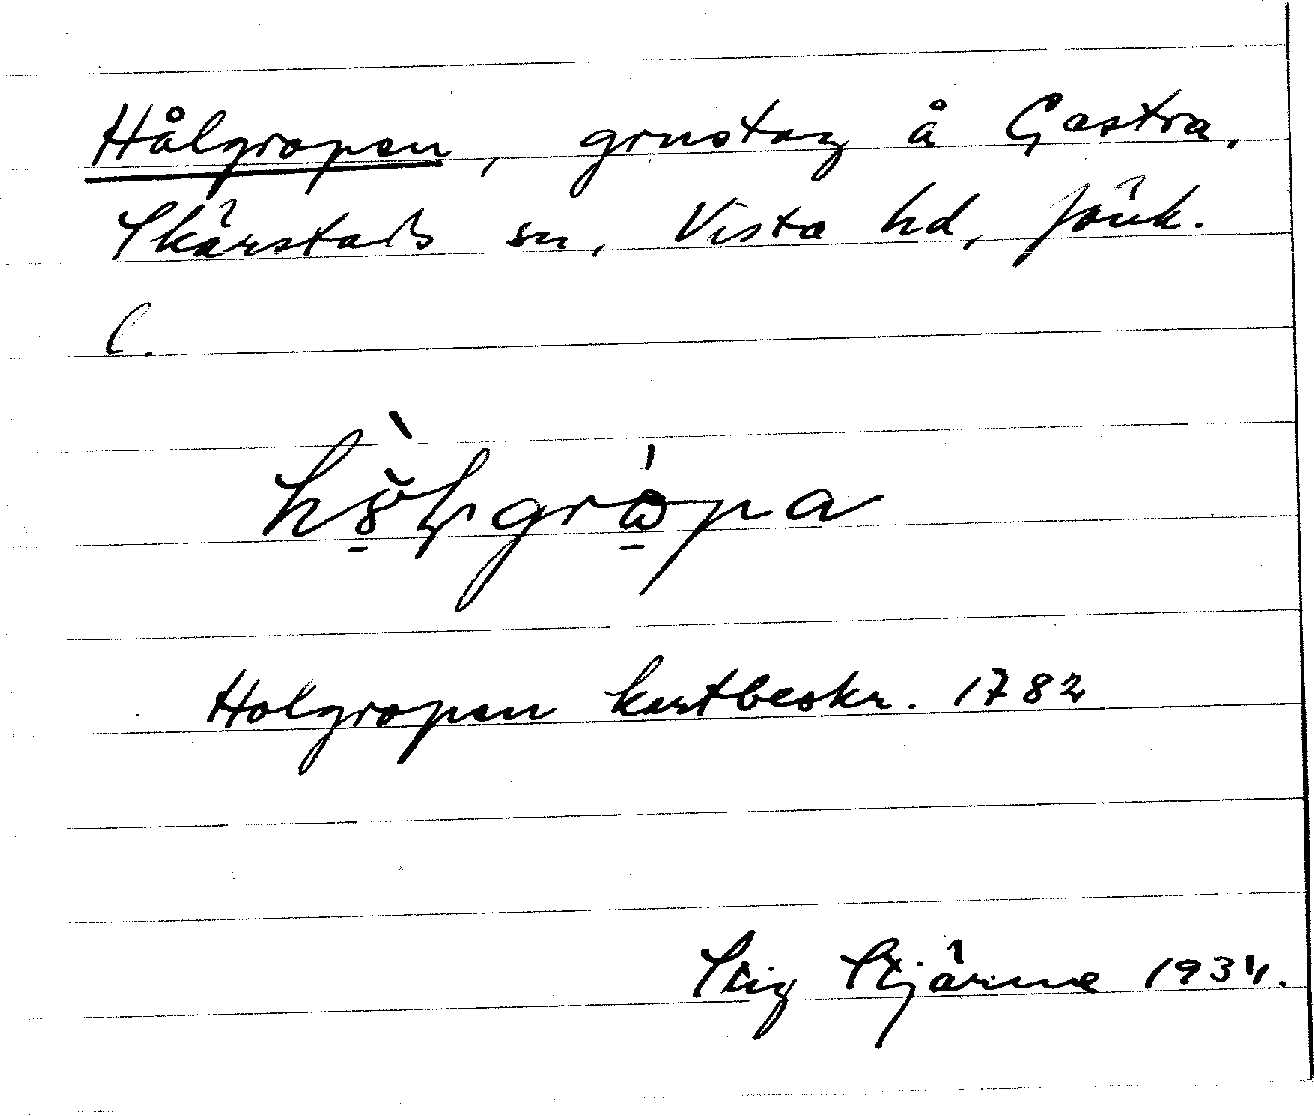 Hålgropen, grustag å Gastra,
Skärstads sn, Vista hd, Jönk.
l.
Holgropen kartbeskr. 1782
Stig Stjärne 1934.